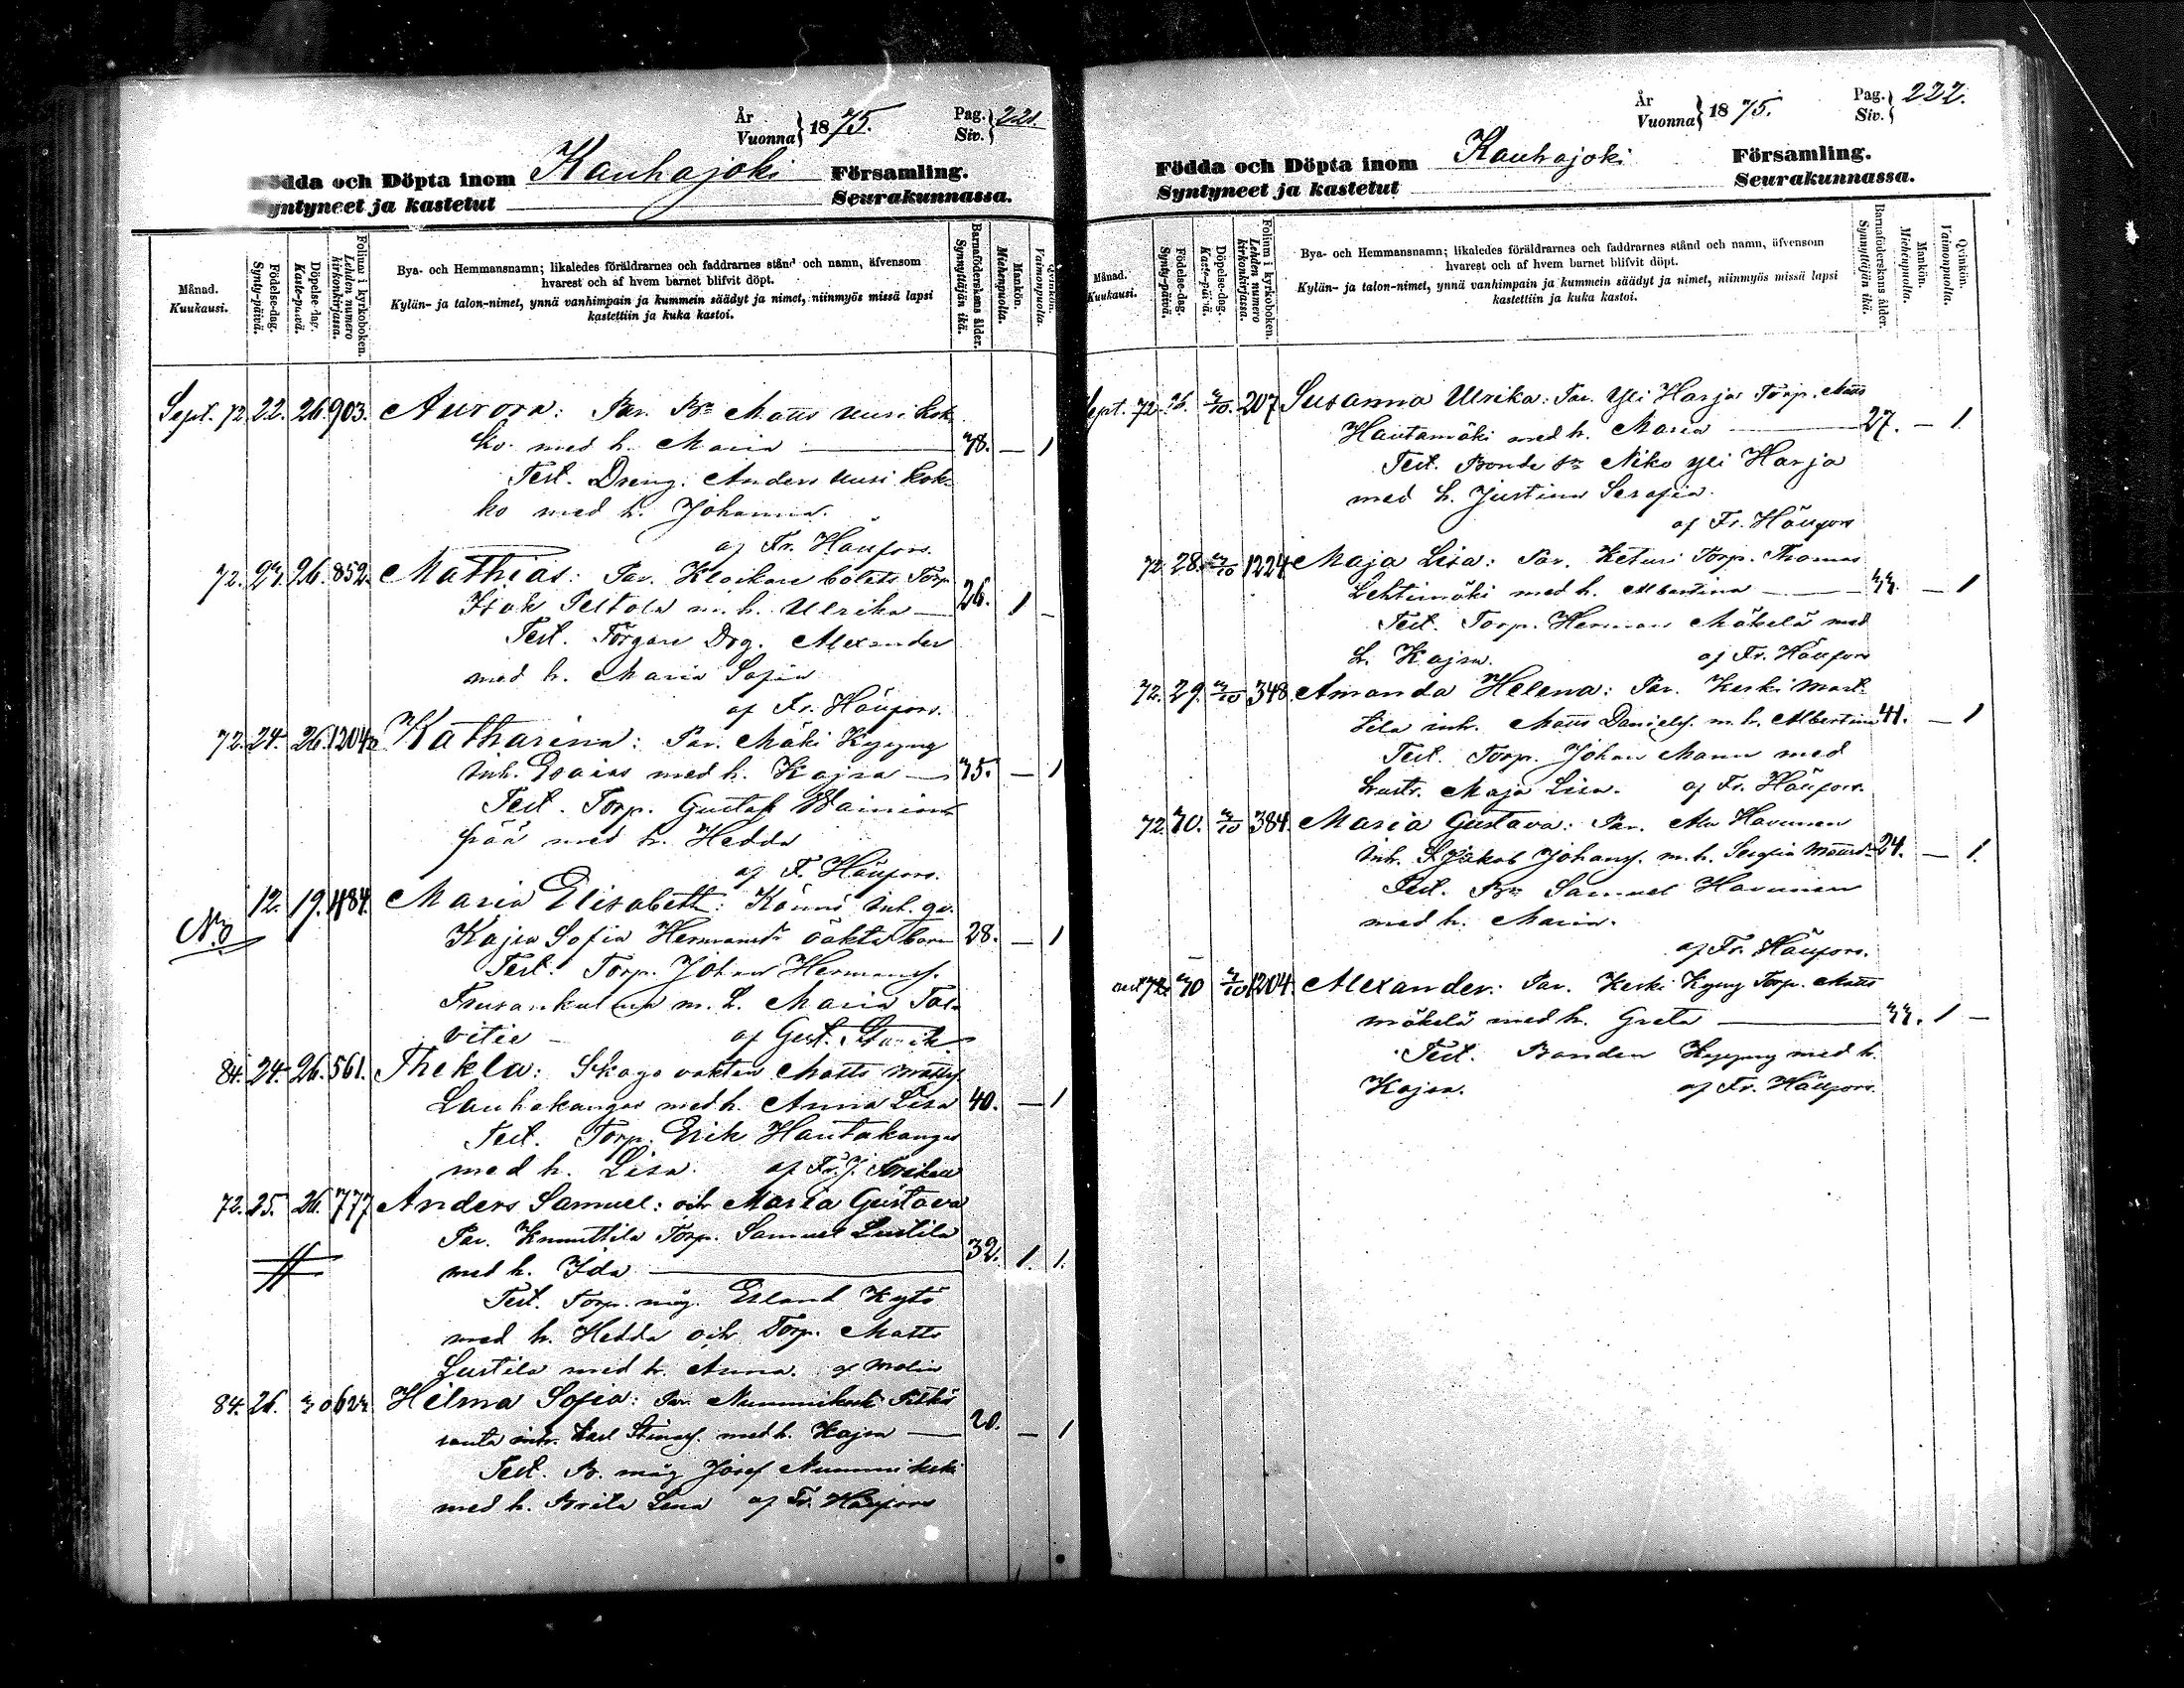 År
Vuonna} 1875.
Pag.
Siv.} 221.
Födda och Döpta inom Kauhajoki Församling.
Syntyneet ja kastetut Seurakunnassa.
Månad.
Kuukausi.
Födelse-dag.
Synty-päivä.
Döpelse-dag.
Kaste-päivä.
Folium i kyrkoboken.
Lehden numero kirkonkirjassa.
Bya- och Hemmansnamn; likaledes föräldrarnes och faddrarnes stånd och namn, äfvensom
hvarest och af hvem barnet blifvit döpt.
Kylän- ja talon-nimet, ynnä vanhimpain ja kummein säädyt ja nimet, niinmyös missä lapsi
kastettiin ja kuka kastoi.
Barnaföderskans ålder.
Synnyttäjän ikä.
Mankön.
Miehenpuolia.
Qvinkön.
Vaimonpuolia.
Sept. 72 22. 26. 903. Aurora: Par. Bn Matts Uusi Kok-
ko med h. Maria — 38. — 1
Test. Dreng. Anders Uusi Kok-
ko med h. Johanna.
af Fr. Häufors.
72. 23. 26. 852. Mathias: Par. Torp.
Isak Peltola m. h. Ulrika — 26. 1 —
Test. Drg. Alexander
med h. Maria Sofia
af Fr. Häufors.
72. 24. 26. 1204 Katharina: Par. Mäki Kyyny
Inh. Esaias med h. Kajsa — 35. — 1
Test. Torp. Gustaf Wainion-
pää med h. Hedda
af F. Häufors.
12. 19. 1184. Maria Elisabeth: Könni Inh. qv.
Kajsa Sofia Hermansdr oäkta barn 28. — 1
Test. Torp. Johan Hermanss.
m. h. Maria Ta-
vitie — af Gust.
84. 24. 26. 561. Thekla: Skogs vakten Matts Mattss.
Lauhakangas med h. Anna Lisa 40. — 1
Test. Torp. Erik Hautakangas
med h. Lisa. af Fr. J.
72. 25. 26. 777 Anders Samuel: och Maria Gustava
Par. Knuuttila Torp. Samuel Lustila
med h. Ida — 32. 1. 1.
Test. Torp. måg. Erland Kytö
med h. Hedda och Torp. Matts
Lustila med h. Anna. af Molin
84. 26. 30 623 Hilma Sofia: Par. Nummikoski
inh. Karl med h. Kajsa — 20. — 1
Test. B. måg Josef Nummikoski
med h. Brita Lena af Fr. Häufors
År
Vuonna} 1875.
Pag.
Siv.} 222.
Födda och Döpta inom Kauhajoki Församling.
Syntyneet ja kastetut Seurakunnassa.
Månad.
Kuukausi.
Födelse-dag.
Synty-päivä.
Döpelse-dag.
Kaste-päivä.
Folium i kyrkoboken.
Lehden numero kirkonkirjassa.
Bya- och Hemmansnamn; likaledes föräldrarnes och faddrarnes stånd och namn, äfvensom
hvarest och af hvem barnet blifvit döpt.
Kylän- ja talon-nimet, ynnä vanhimpain ja kummein säädyt ja nimet, niinmyös missä lapsi
kastettiin ja kuka kastoi.
Barnaföderskans ålder.
Synnyttäjän ikä.
Mankön.
Miehenpuolia.
Qvinkön.
Vaimonpuolia.
Sept. 72. 26. 3/10. 207 Susanna Ulrika: Par. Yli Harja Torp. Matts
Hautamäki med h. Maria — 27. — 1.
Test. Bonde Niko Yli Harja
med h. Justina Serafia.
af Fr. Häufors
72. 28. 3/10 1224 Maja Lisa: Par. Keturi Torp. Thomas
Lehtimäki med h. Albertina — 33. — 1
Test. Torp. Herman Mäkelä med
h. Kajsa. af Fr. Häufors
72. 29. 3/10 348 Amanda Helena: Par. Keski Mart-
tila inh. Matts Daniels. m. h. Albertina 41. — 1
Test. Torp. Johan Mann med
hustr. Maja Lisa. af Fr. Häufors.
72. 30. 3/10 384. Maria Gustava: Par. Ala Havunen
Inh. Jakob Johanss. m. h. Serafia Mattsdr 24. — 1.
Test. Bn Samuel Havunen
med h. Maria.
af Fr. Häufors.
72 30 3/10 1204. Alexander: Par. Keski Kyyny Torp. Matts
Mäkelä med h. Greta — 33. 1 —
Test. Bonden Kyyny med h.
Kajsa. af Fr. Häufors.